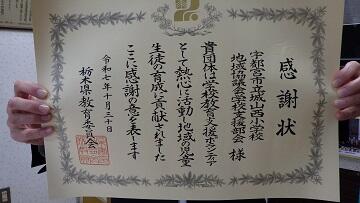 感謝状
宇都宮市立城山西小学校
地域協議会学校支援部会 様
貴団体は学校教育支援ボランティア
として熱心に活動し地域の児童
生徒の育成に貢献されました
ここに感謝の意を表します
令和七年十月三十日
栃木県教育委員会